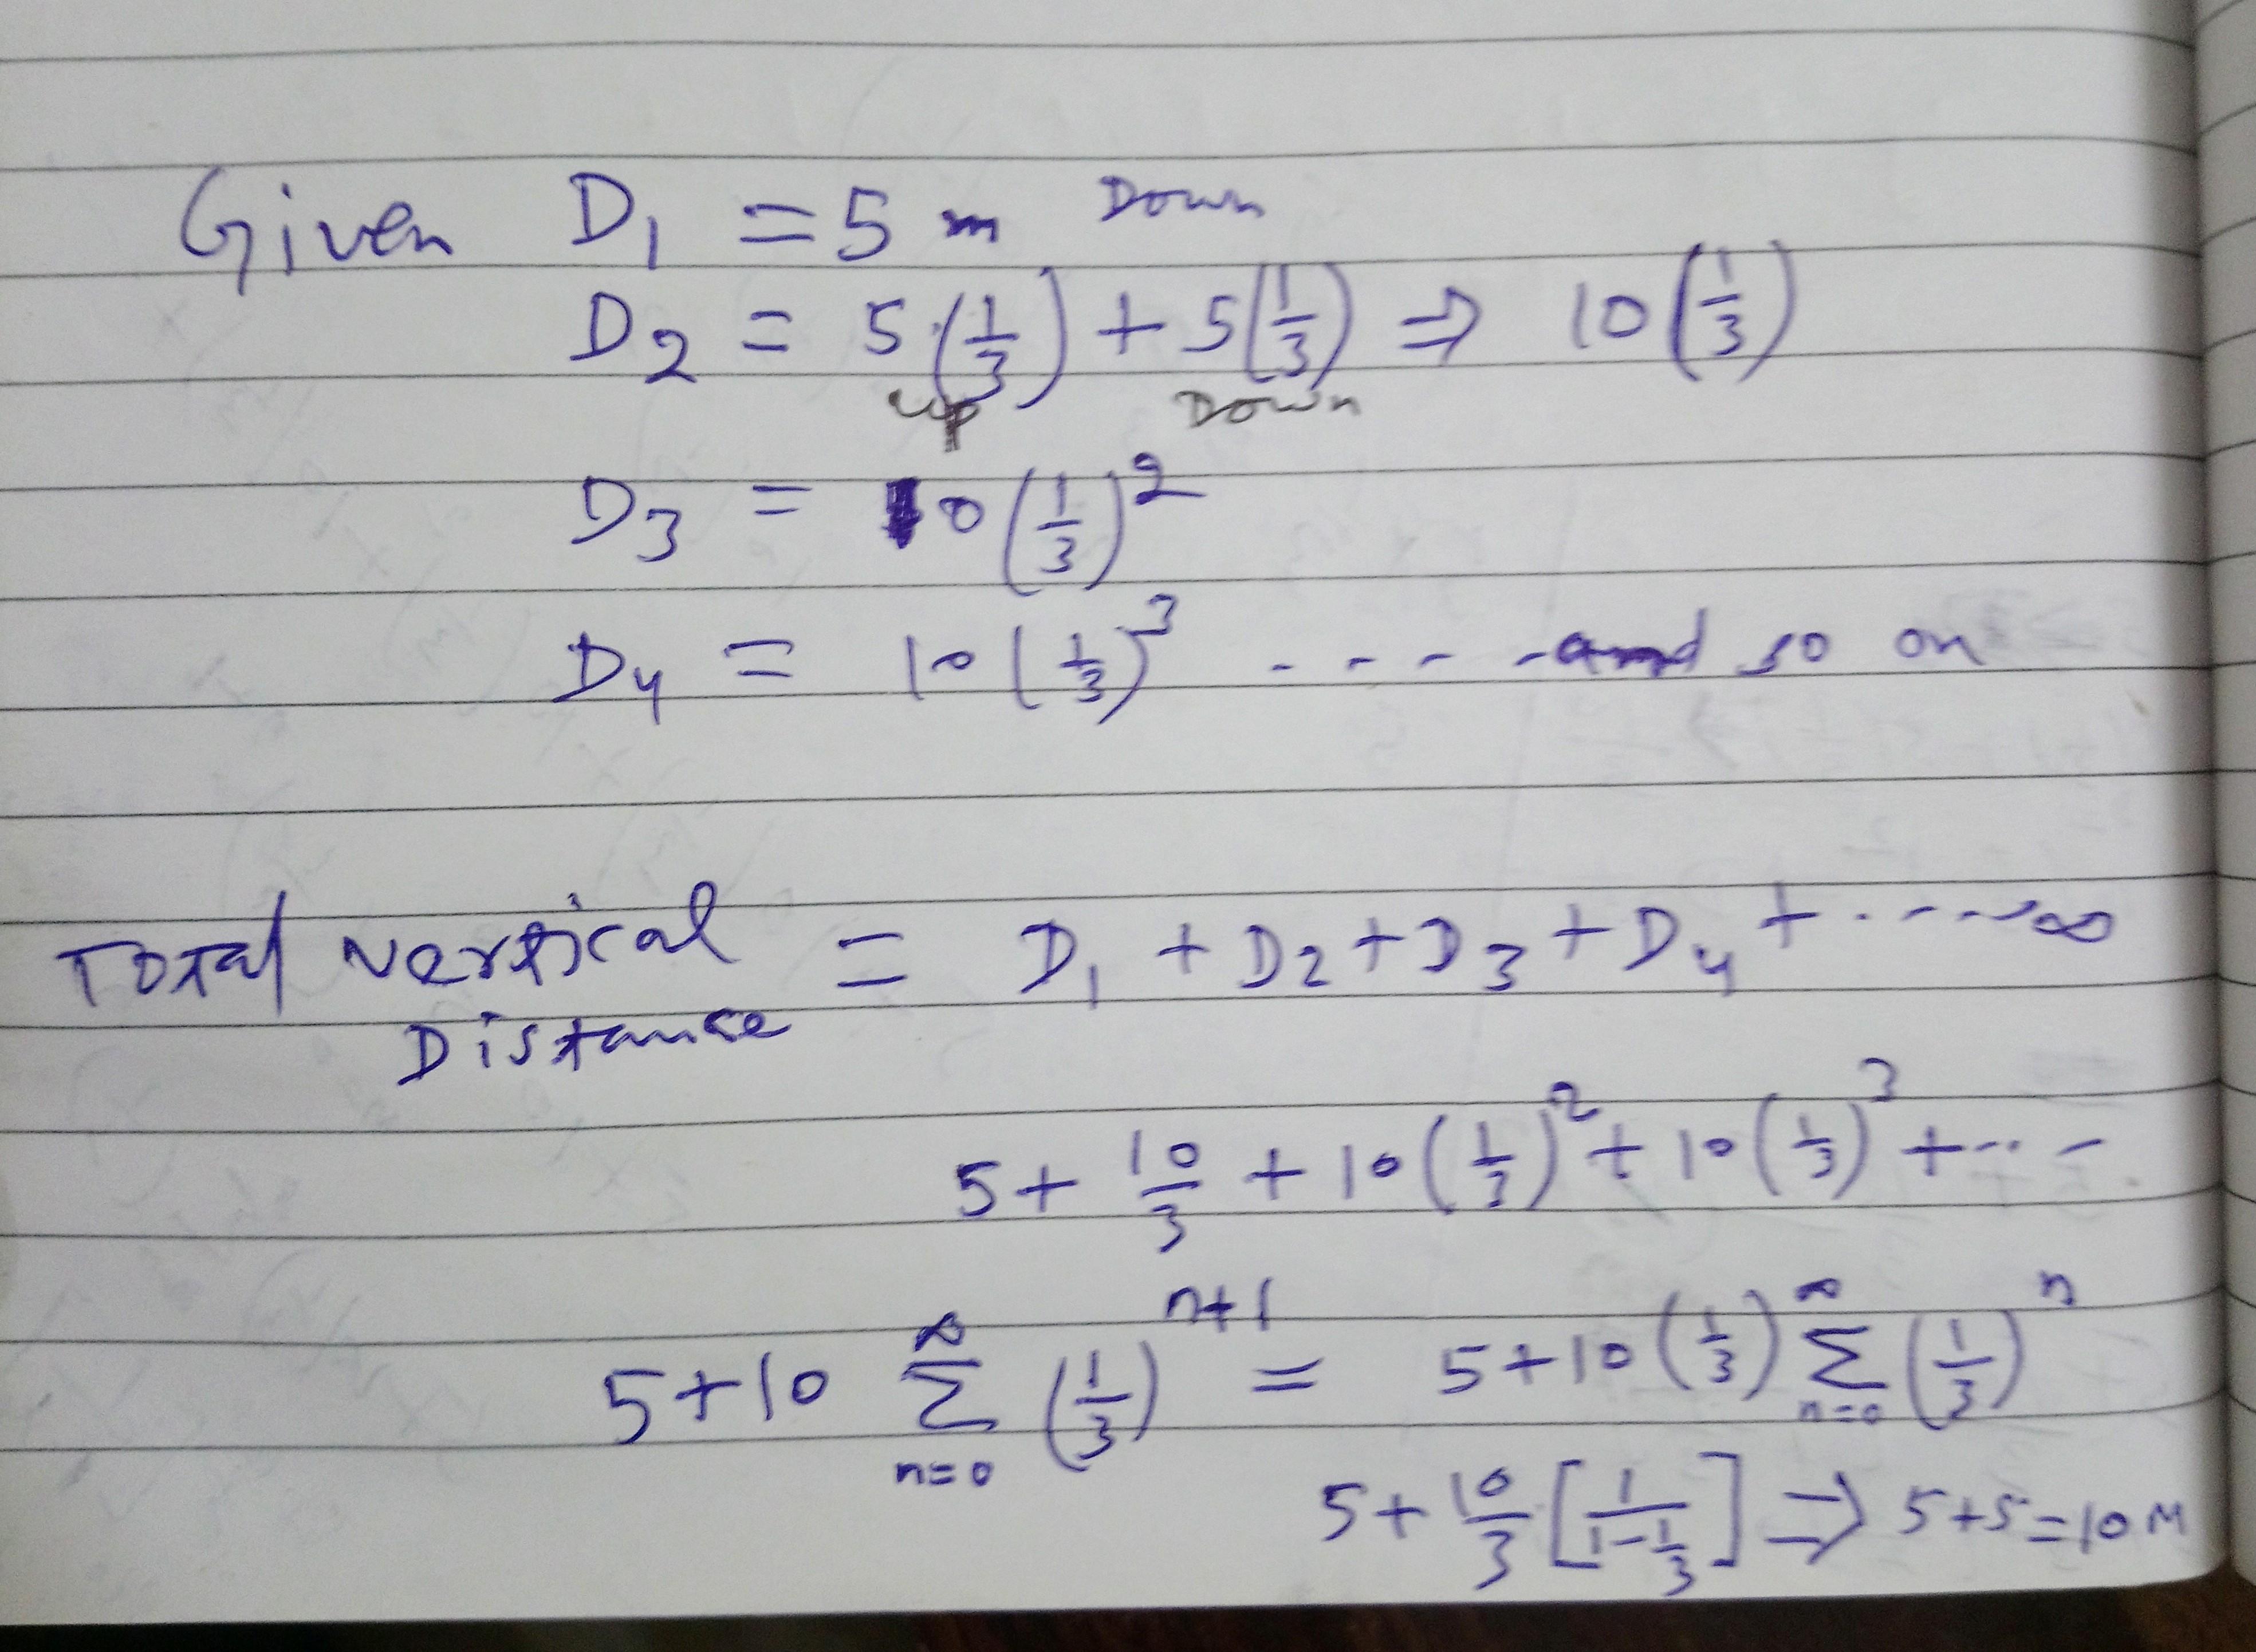 Given D₁ = 5 m Down
D₂ = 5 (1/3) + 5 (1/3) ⇒ 10 (1/3)
up Down
D₃ = 10 (1/3)²
D₄ = 10 (1/3)³ - - - - and so on
Total Vertical = D₁ + D₂ + D₃ + D₄ + ----∞
Distance
5 + 10/3 + 10 (1/3)² + 10 (1/3)³ + ---
5+10 ∑_{n=0}^{∞} (1/3)ⁿ⁺¹ = 5+10 (1/3) ∑_{n=0}^{∞} (1/3)ⁿ
5 + 10/3 [1/(1-1/3)] ⇒ 5+5=10 M